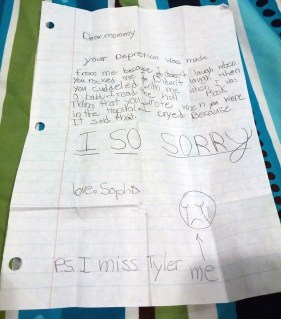 Dear mommy
your Depretion was made
from me because I Didn't laugh when
You rocked me I Didn't laugh when
you cuddeled with me when I was
a baby I read the hol Book
thing that you wrote when you were
in the Hospital I cryed Because
It said that.
I SO SORRY
love. Soph
P.S. I miss Tyler me